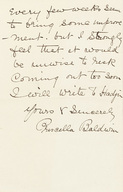 Every few weeks seem
to bring some improve
- ment. but I strongly
feel that it would
be unwise to risk
Coming out too soon
I will write to
Yours V Sincerely
Baldwin